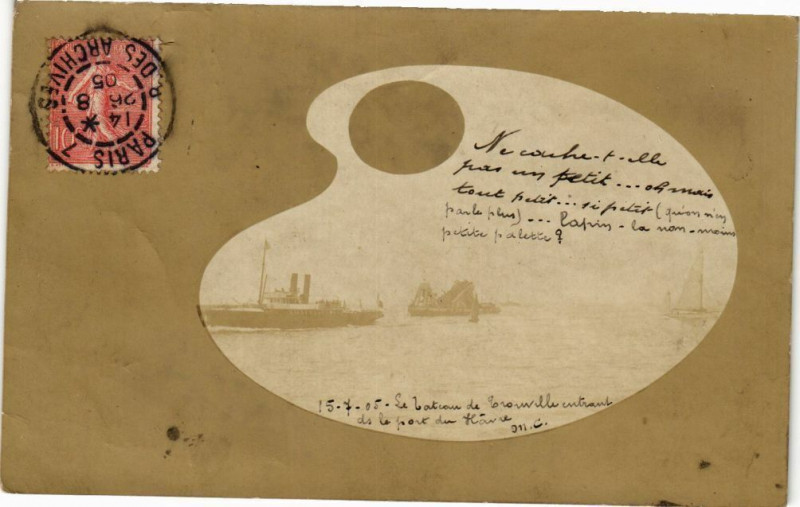 PARIS 7
R. DES ARCHIVES
14 *
26 8
05
10
Ne cache-t-elle
pas un petit... oh mais
tout petit... si petit (qu'on n'en
parle plus)... lapin - la non-moins
petite palette?
15-7-05 - Le bateau de Trouville entrant
ds le port du Hâvre
M.C.